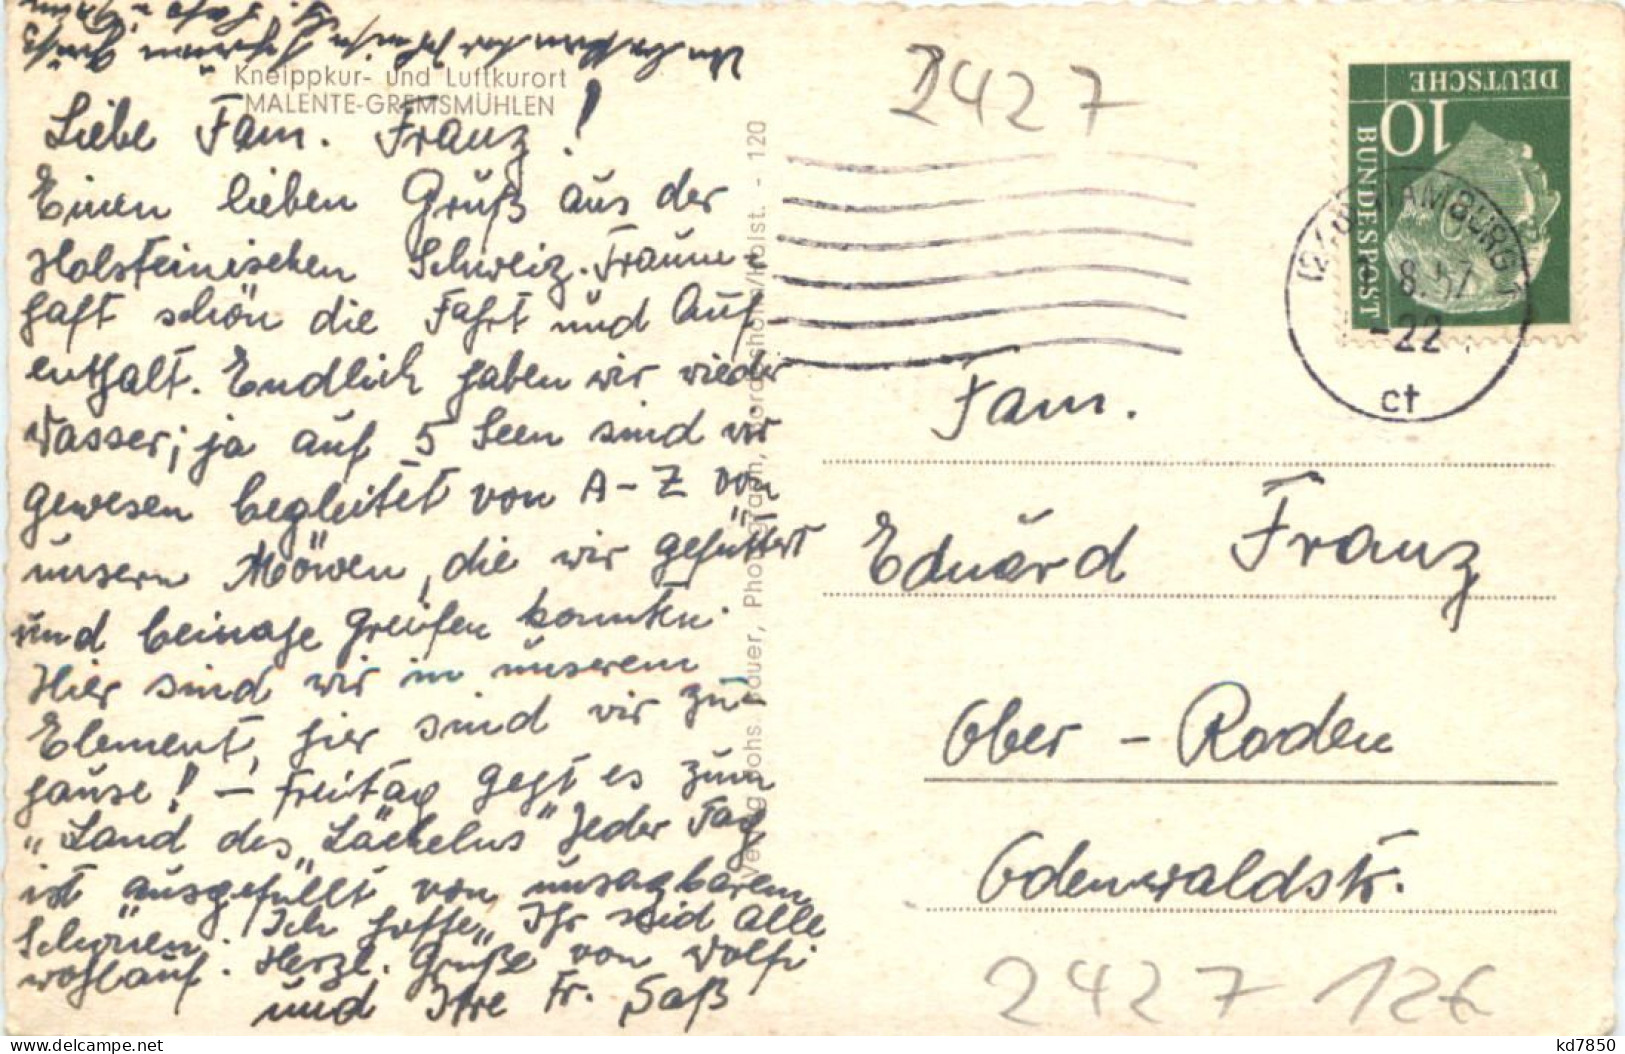 Kneippkur- und Luftkurort
MALENTE-GREMSMÜHLEN
Liebe Fam. Franz!
Einen lieben Gruß aus der
Holsteinischen Schweiz. Traum-
haft schön die Fahrt und Auf-
enthalt. Endlich haben wir wieder
Wasser; ja auf 5 Seen sind wir
gewesen begleitet von A-Z von
unsern Möwen, die wir gefüttert
und beinahe greifen konnten.
Hier sind wir in unserem
Element, hier sind wir zu-
hause! - Freitag geht es zum
"Land des Lächelns" Jeder Tag
ist ausgefüllt von unsagbarem
Schönen. Ich hoffe, Ihr seid alle
wohlauf. Herzl. Grüße von Wolfi
und Ihre Fr. Saß
Verlag Johs. Bauer, Photograph, Nordseeholm/Holst. - 120
2427
DEUTSCHE
BUNDESPOST
10
HAMBURG 1
8.57
-22
ct
Fam.
Eduard Franz
Ober-Roden
Odenwaldstr.
2427 12€
delcampe.net
kd7850